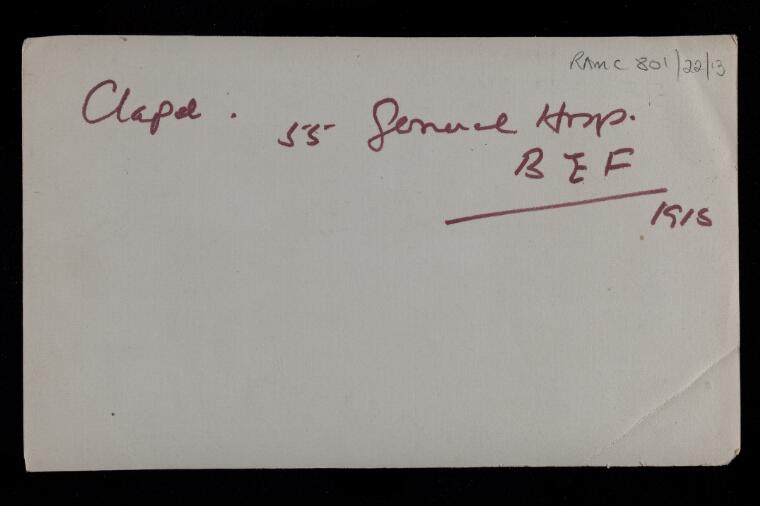 RAMC 801/22/13
Clapel . 55 General Hosp.
B E F
1915